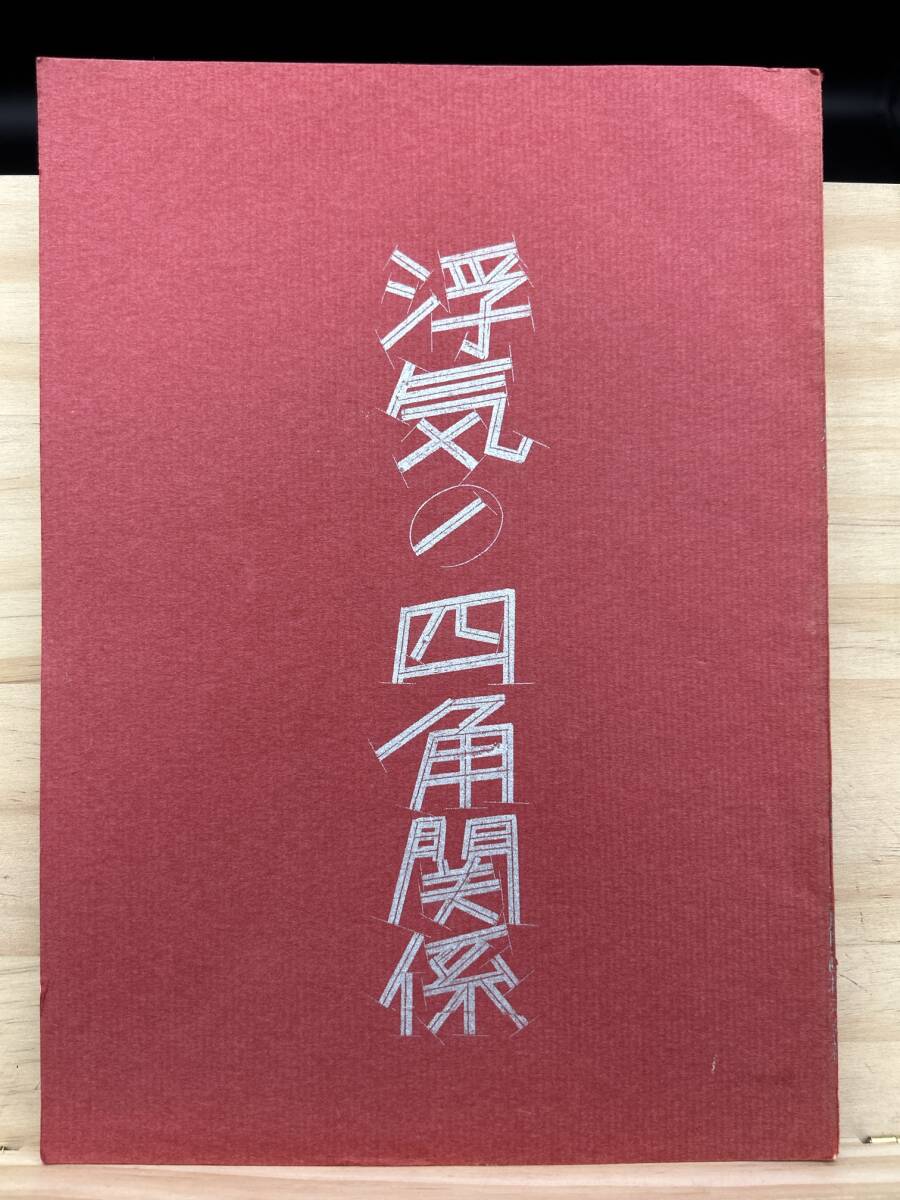 浮気の四角関係